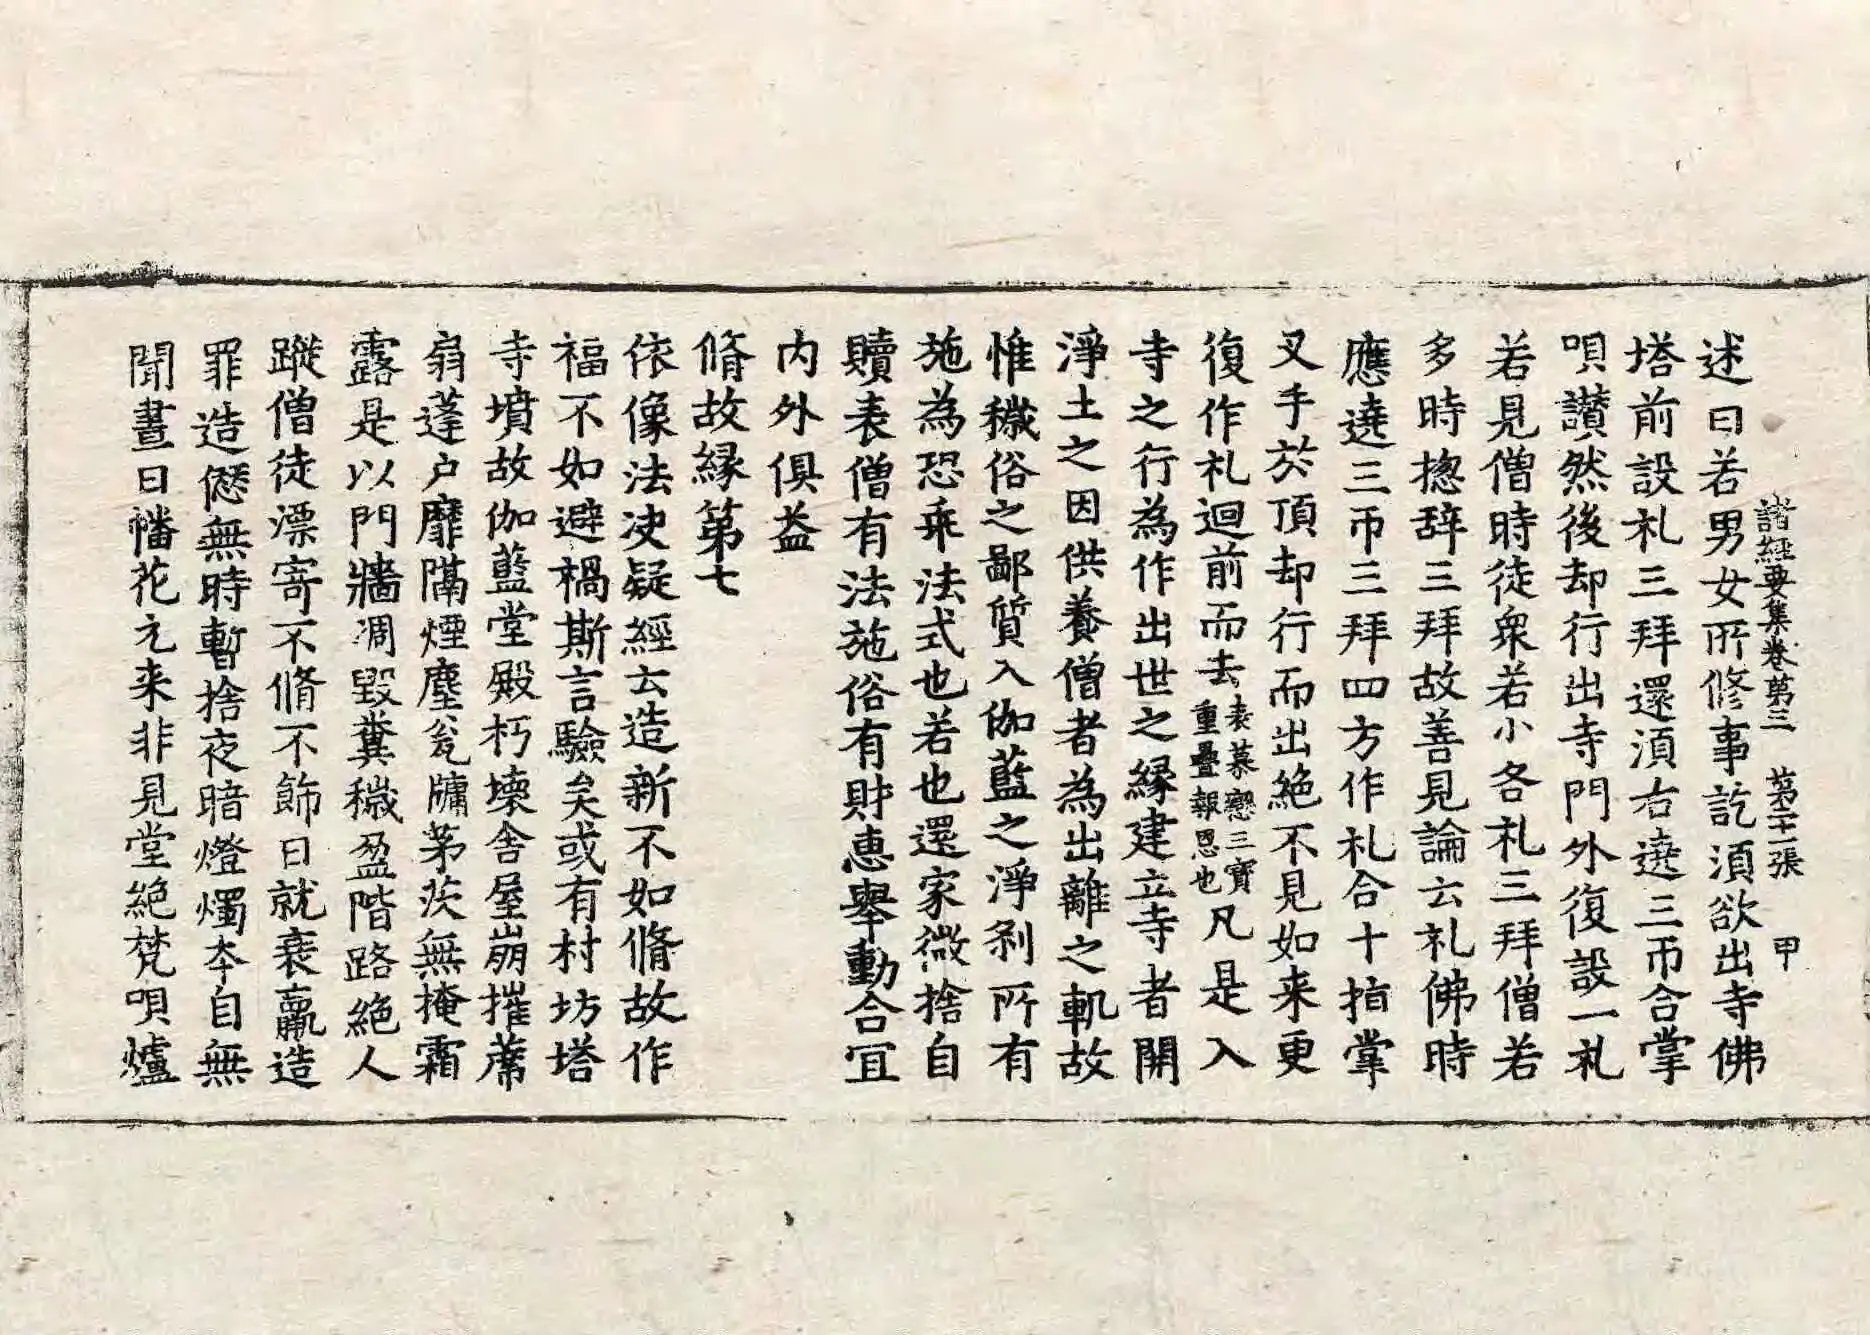 諸經要集卷第三 第二十二張 甲
述曰若男女所修事訖湏欲出寺佛
塔前設礼三拜還湏右遶三帀合掌
唄讃然後却行出寺門外復設一礼
若見僧時徒衆若小各礼三拜僧若
多時揔辞三拜故善見論云礼佛時
應遶三帀三拜四方作礼合十指掌
叉手於頂却行而出絶不見如来更
復作礼迴前而去表慕戀三寶重疊報恩也凡是入
寺之行為作出世之縁建立寺者開
淨土之因供養僧者為出離之軌故
惟穢俗之鄙質入伽藍之淨刹所有
施為恐乖法式也若也還家微捨自
贖表僧有法施俗有財惠舉動合宜
内外俱益
脩故縁第七
依像法决疑經云造新不如脩故作
福不如避禍斯言驗矣或有村坊塔
寺墳故伽藍堂殿朽壊舎屋崩摧蓆
扇蓬戸靡隔煙塵瓮牖茅茨無掩霜
露是以門牆凋毀糞穢盈階路絶人
蹤僧徒漂寄不脩不飾日就衰羸造
罪造愆無時暫捨夜暗燈燭夲自無
聞晝日幡花元来非見堂絶梵唄爐